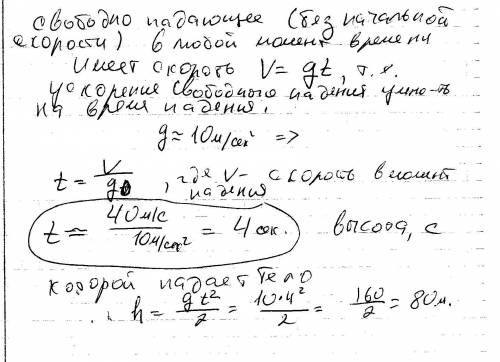 свободно падающее (без начальной
скорости) в любой момент времени
имеет скорость V = gt, т.е.
ускорение свободного падения умно-ть
на время падения.
g ≈ 10 м/сек² =>
t = V/g, где V - скорость в момент
падения
t ≈ 40 м/с / 10 м/сек² = 4 сек. высоа, с
которой падает тело
h = gt²/2 = 10·4²/2 = 160/2 = 80 м.